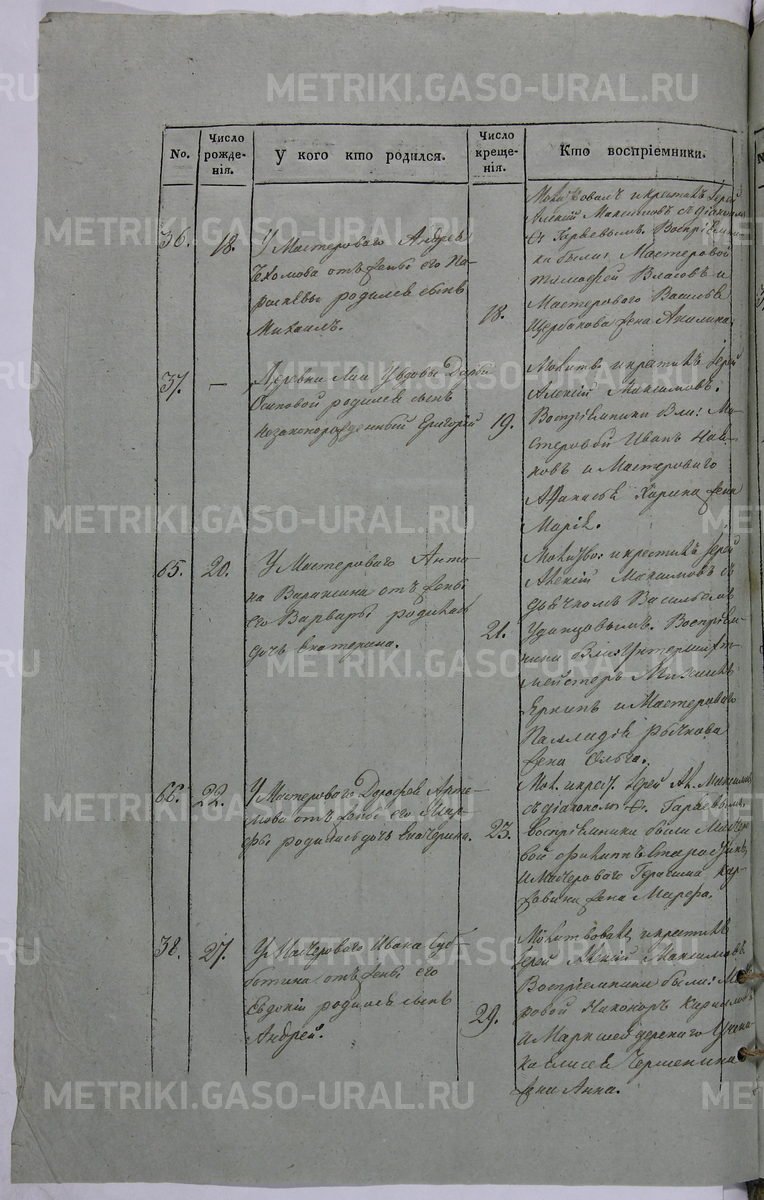 METRIKI.GASO-URAL.RU
No.
Число рожде- нія.
У кого кто родился.
Число креще- нія.
Кто воспріемники.
36.
18.
У Мастероваго Андрея
отъ жены его Па-
раскевы родился сынъ
Михаилъ.
18.
Молитвовалъ и крестилъ Іерей
Алексій Максимовъ съ діакономъ
С. Гаряевымъ. Воспріемни-
ки были: Мастеровой
Тимофей Власовъ и
Мастероваго Василья
Щербакова жена Акилина.
37.
—
Деревни Лаи у вдовы Дарьи
Осиповой родился сынъ
незаконорожденный Григорій
19.
Молитв. и крестилъ Іерей
Алексій Максимовъ.
Воспріемники были: Ма-
стеровой Иванъ
и Мастероваго
Афанасья Харина жена
Марія.
65.
20.
У Мастероваго Анто-
на отъ жены
его Варвары родилась
дочь Екатерина.
21.
и крестилъ Іерей
Алексій Максимовъ съ
дьячкомъ Васильемъ
Удинцовымъ. Воспріем-
ники были: Унтершихт-
мейстеръ
и Мастероваго
Палладія Рычкова
жена Ольга.
66.
22.
У Мастероваго Дорофея Арте-
мова отъ жены его Мар-
фы родилась дочь Екатерина.
23.
Мол. и крест. Іерей Ал. Максимовъ
съ діакономъ С. Гаряевымъ,
воспріемники были Масте-
вой Филиппъ
и Мастероваго Герасима
жена Марфа.
38.
27.
У Мастероваго Ивана Суб-
ботина отъ жены его
Евдокіи родился сынъ
Андрей.
29.
Молитвовалъ и крестилъ
Іерей Алексій Максимовъ
Воспріемники были: М.
ровой Никоноръ Кирилловъ
и Маркшейдерскаго Учени-
ка Елисея
жена Анна.